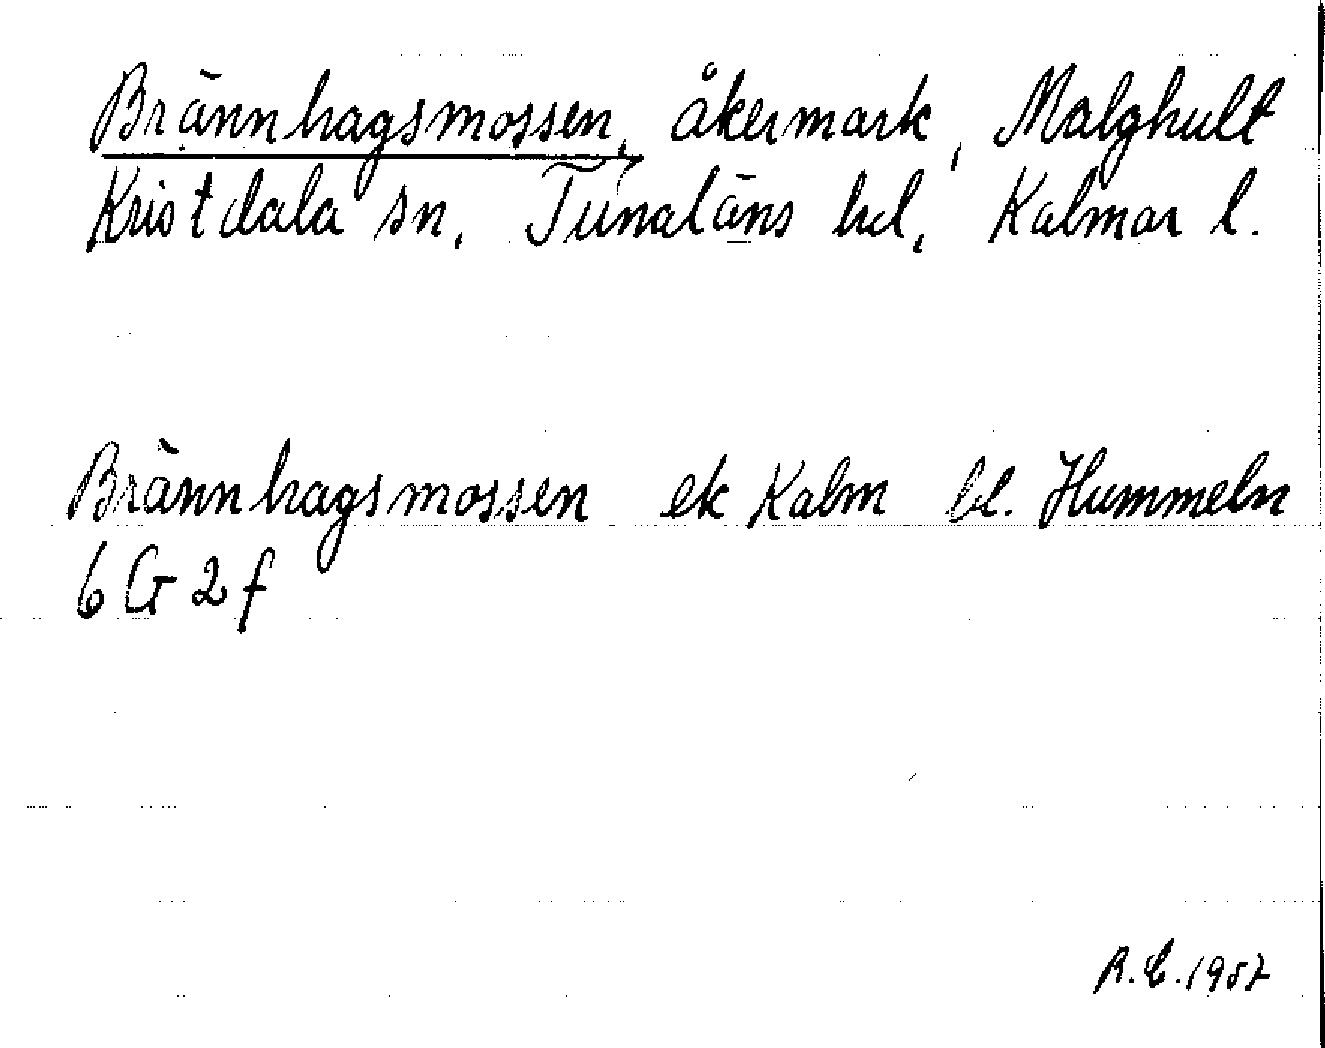 Brännhagsmossen, åkermark, Malghult
Kristdala sn, Tunaläns hd, Kalmar l.
Brännhagsmossen ek Kalm bl. Hummeln
6 G 2 f
R.C. 1957